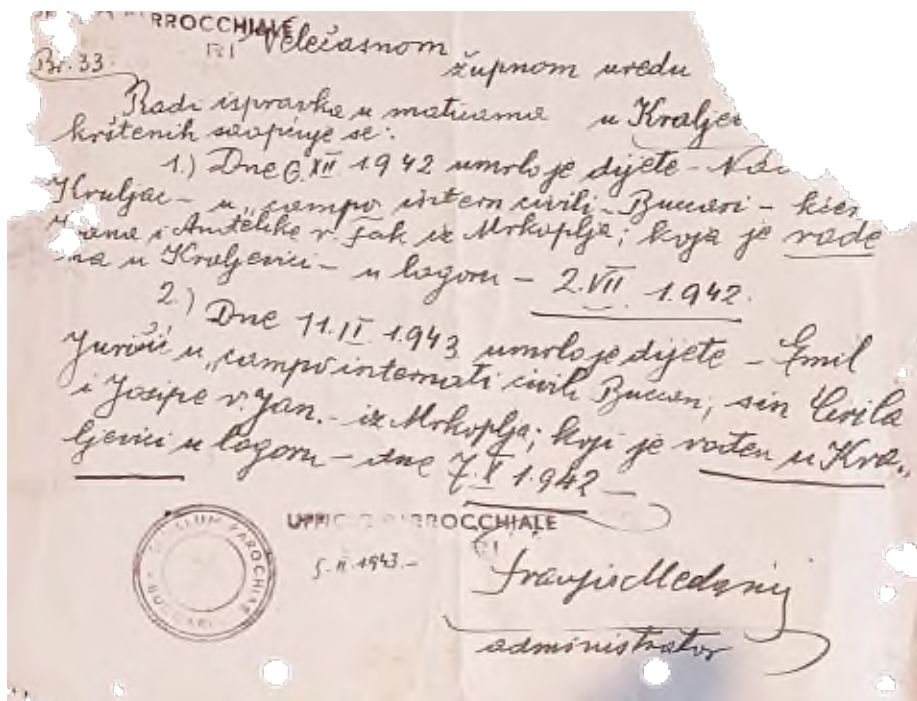 RROCCHIALE
Velečasnom
Br. 33.
župnom uredu
Radi ispravka u maticama u Kraljev
krštenih saopćuje se:
1.) Dne 6. XII 1942 umrlo je dijete -
Kruljac - u „campo intern civili - Buccari - kćer
i Anđelke r. Fak iz Mrkoplja; koja je rođe
na u Kraljevici - u logoru - 2. VII 1942.
2.) Dne 11. II 1943 umrlo je dijete - Emil
Jurišić u „campo internati civili Buccari, sin Cirila
i Josipe r. Jan. - iz Mrkoplja; koji je rođen u Kra„
ljevici u logoru - dne 7. X 1942 -
UFFICIO PARROCCHIALE
SIGILLUM PAROCHIAE
5. II. 1943. -
administrator